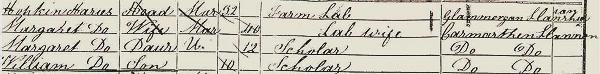 Hopkin Harris Head Mar 52 Farm Lab Glammorgan
Margaret Do Wife Mar 40 Lab wife Carmarthen Llannon
Margaret Do Daur U. 12 Scholar Do Do
William Do Son 10 Scholar Do Do